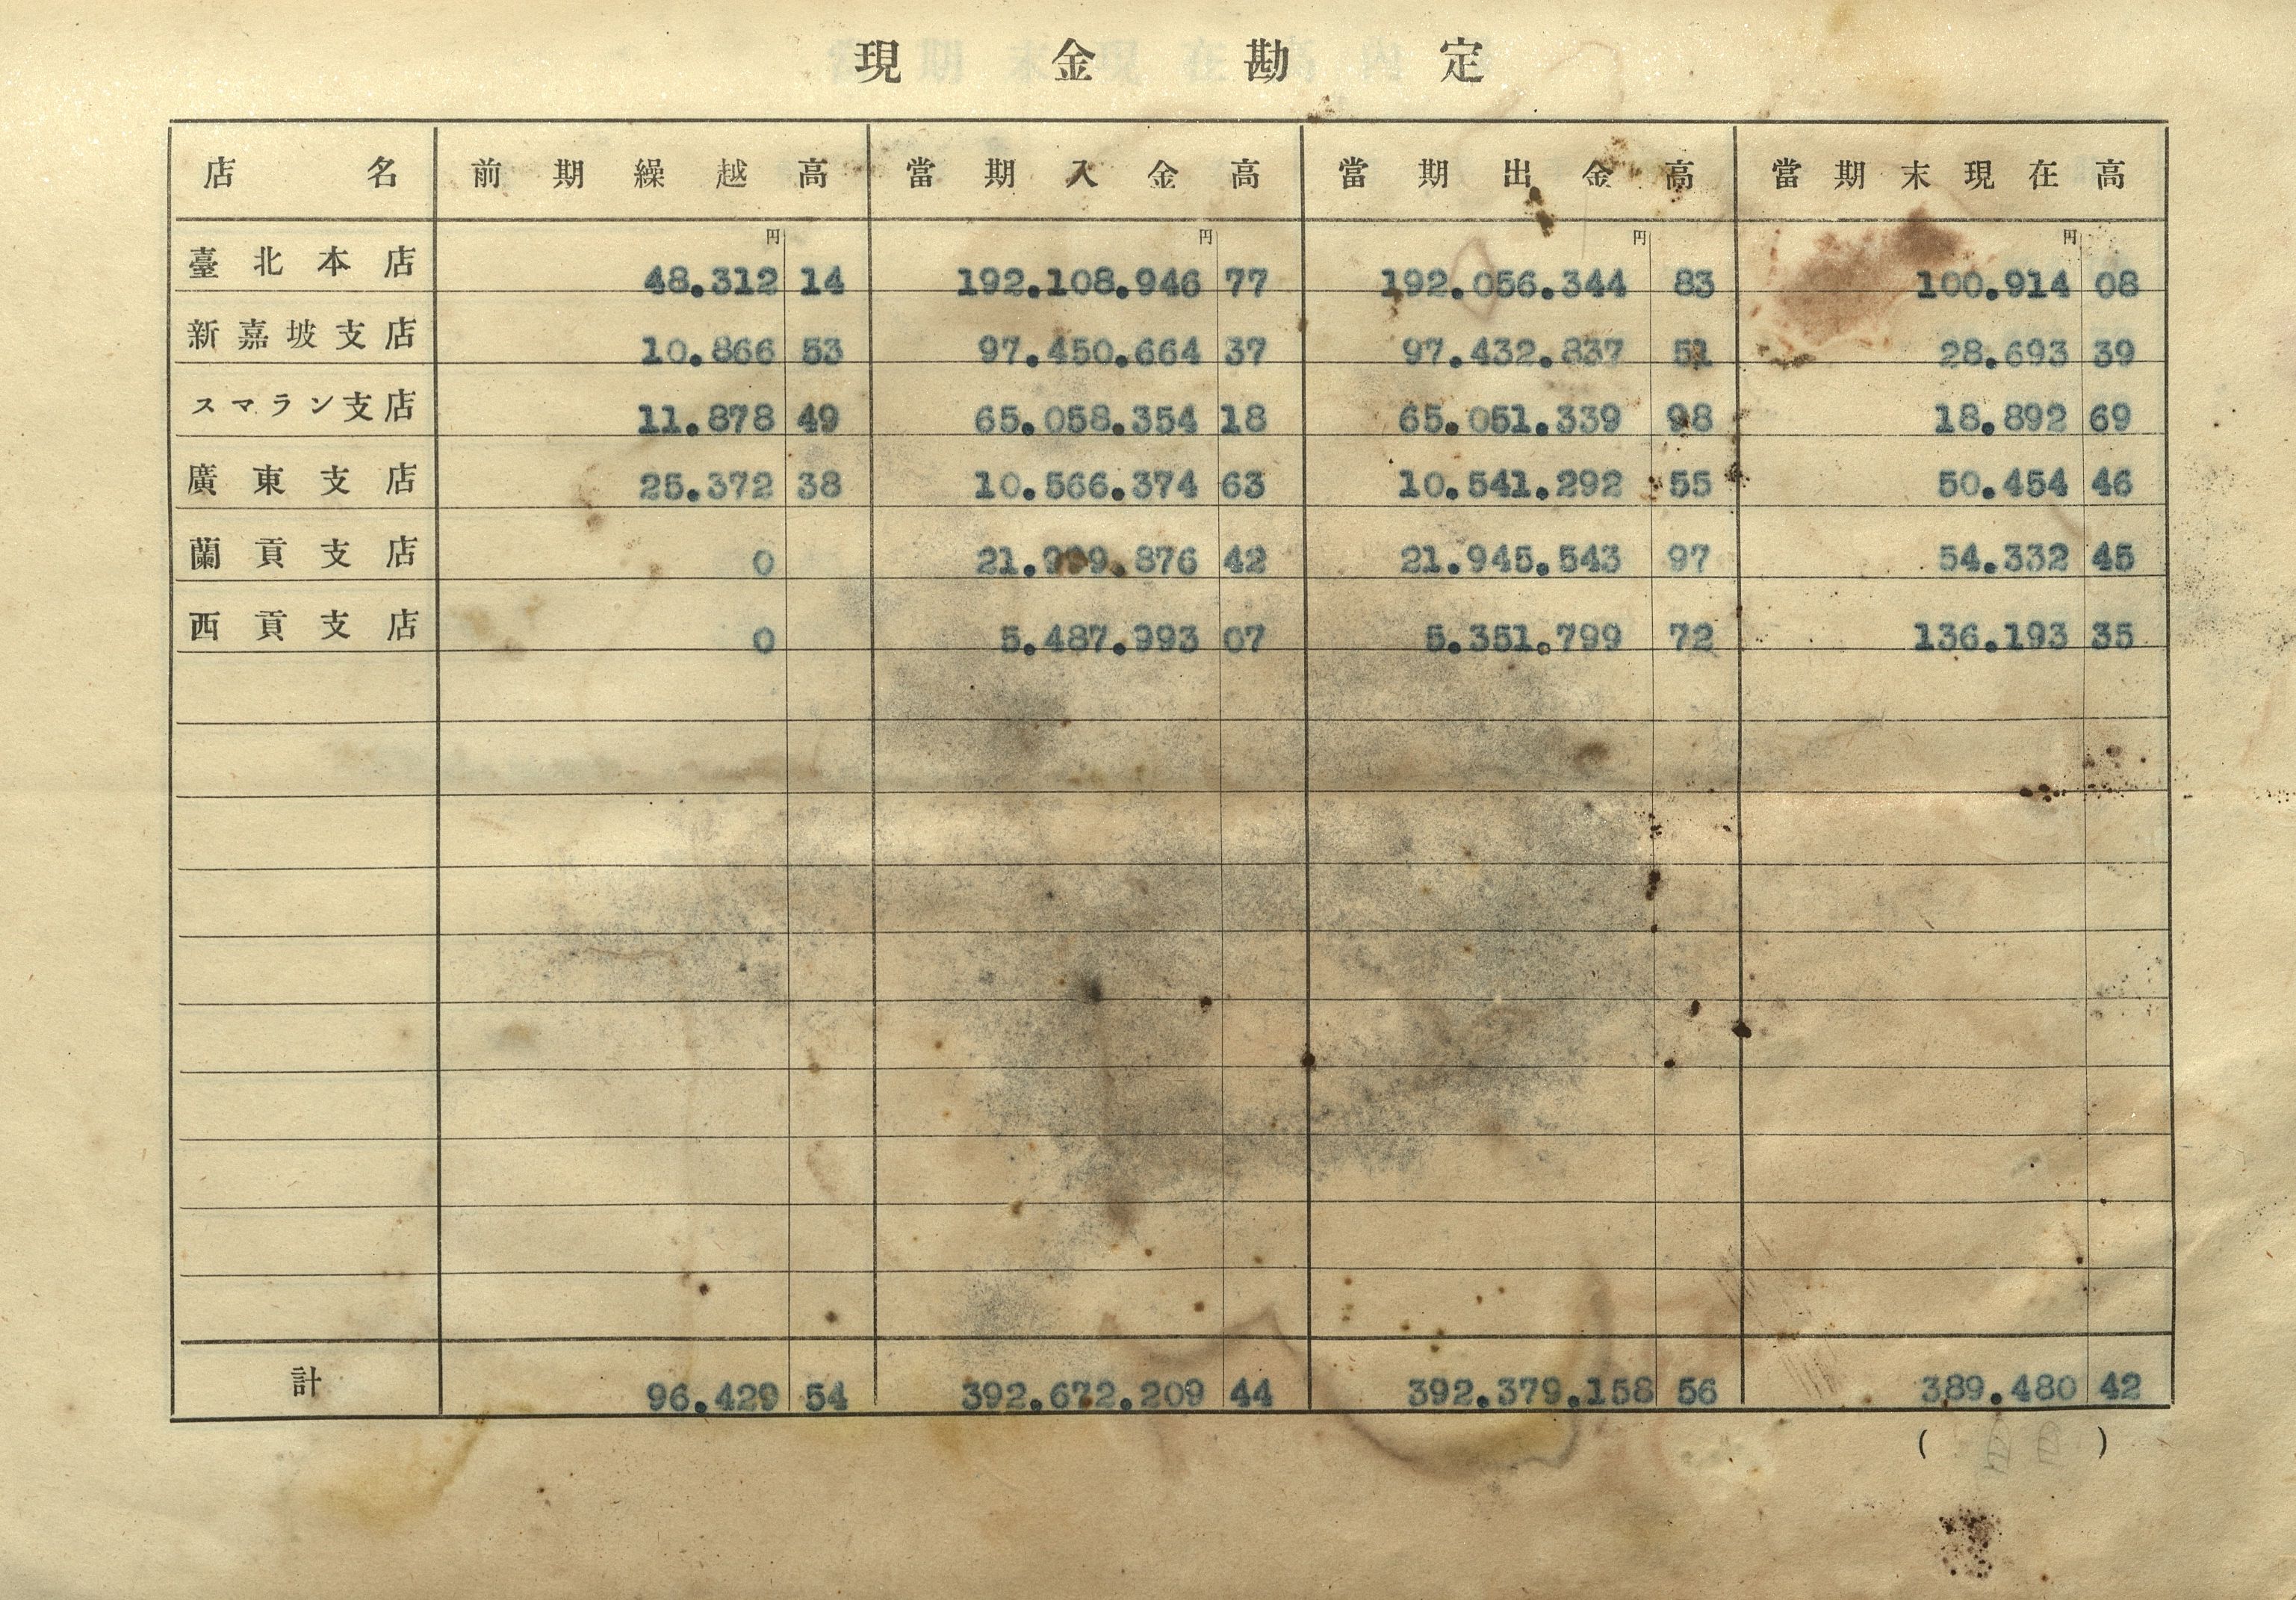 現金勘定
店名 前期繰越高 當期入金高 當期出金高 當期末現在高
円 円 円 円
臺北本店 48.312 14 192.108.946 77 192.056.344 83 100.914 08
新嘉坡支店 10.866 53 97.450.664 37 97.432.837 51 28.693 39
スマラン支店 11.878 49 65.058.354 18 65.051.339 98 18.892 69
廣東支店 25.372 38 10.566.374 63 10.541.292 55 50.454 46
蘭貢支店 0 21.999.876 42 21.945.543 97 54.332 45
西貢支店 0 5.487.993 07 5.351.799 72 136.193 35
計 96.429 54 392.672.209 44 392.379.158 56 389.480 42
( )